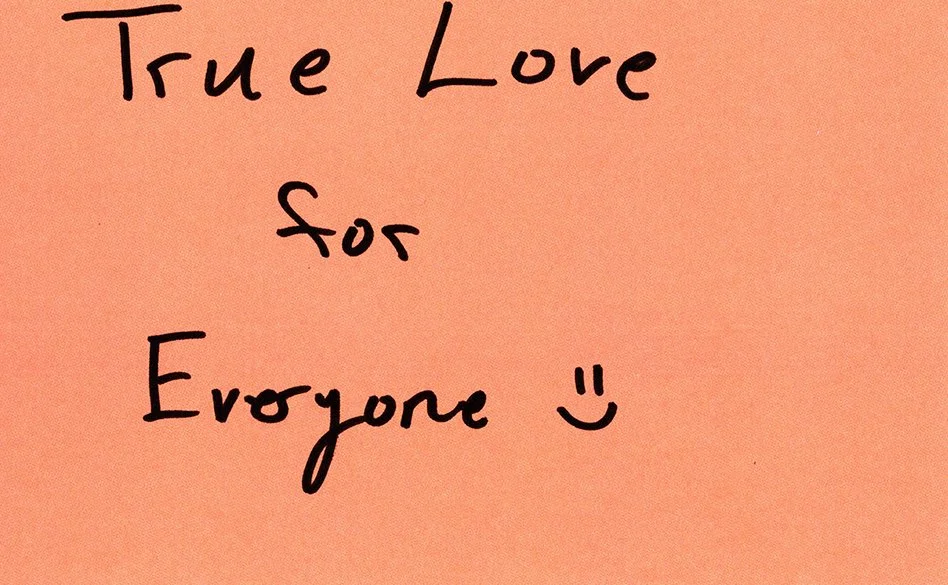 True Love
for
Everyone